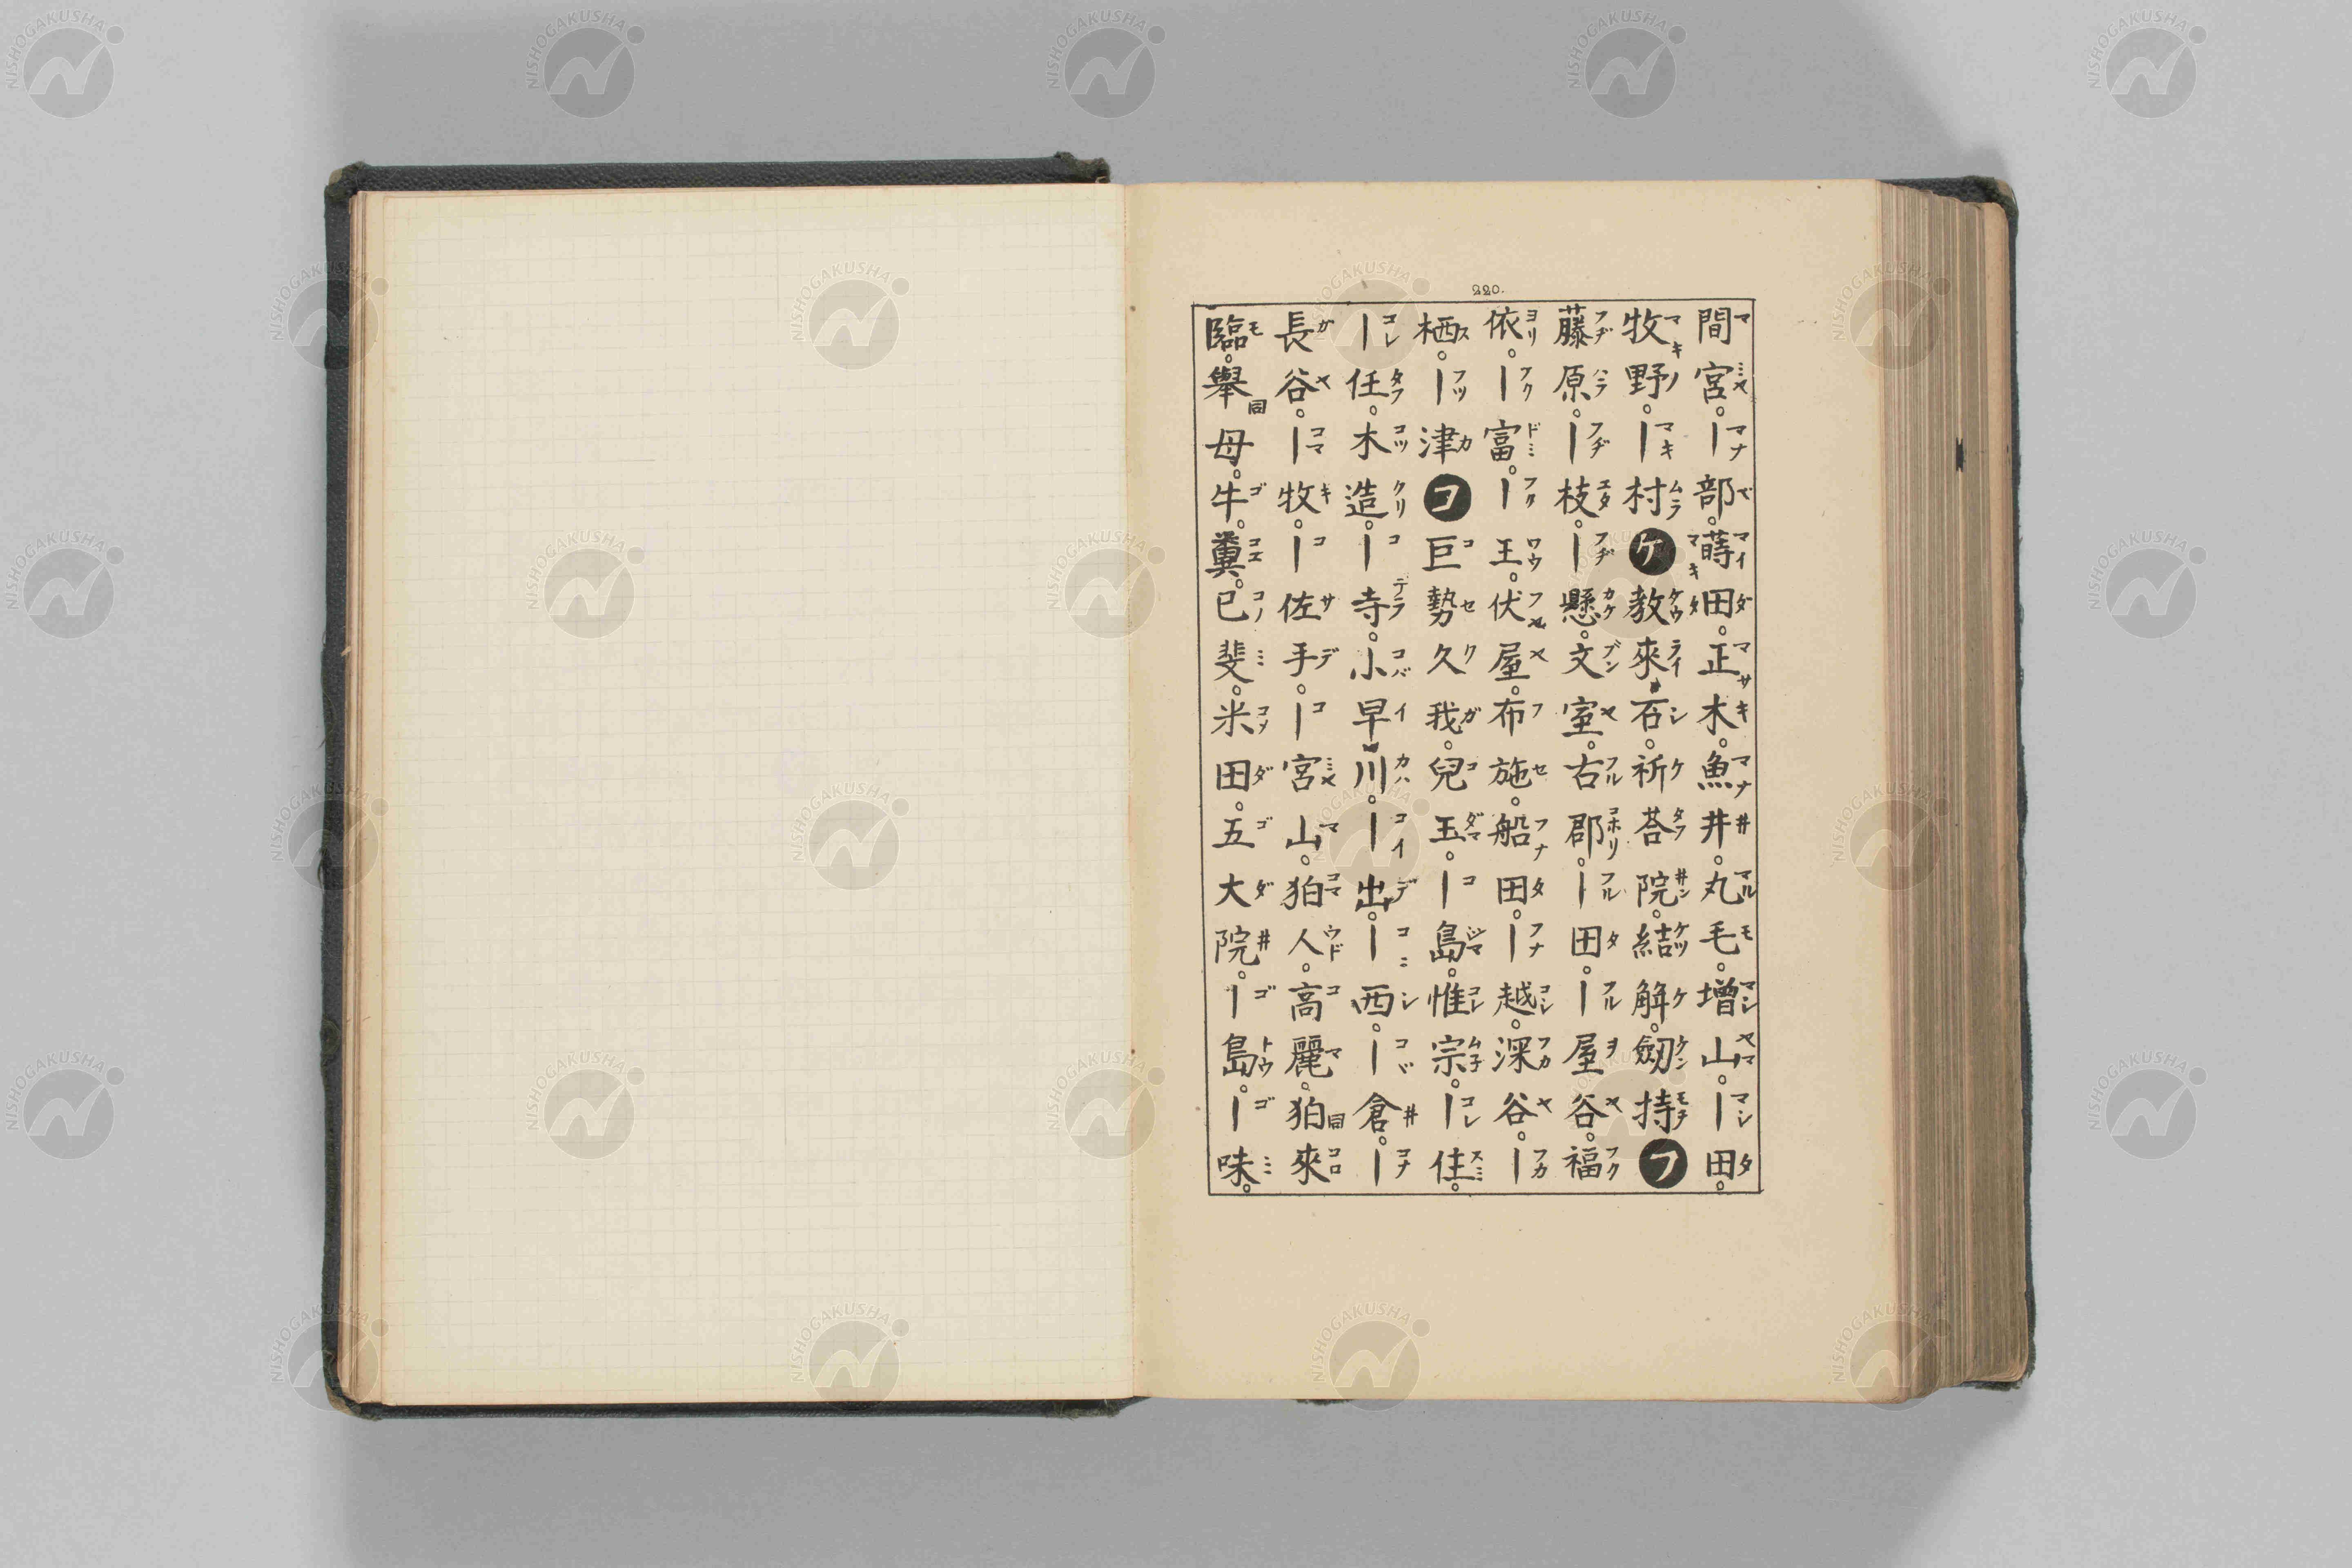 220.
間宮。｜部。蒔田。正木。魚井。丸毛。増山。｜田。
牧野。｜村ケ教來石。祈荅院。結解。劔持フ
藤原。｜枝。｜懸。文室。古郡。｜田。｜屋谷。福
依。｜富。｜王。伏屋。布施。船田。｜越。深谷。｜
栖。｜津コ巨勢久我。兒玉。｜島。惟宗。｜住。
｜任。木造。｜寺。小早川。｜出。｜西。｜倉。｜
長谷。｜牧。｜佐手。｜宮山。狛人。高麗。狛來
臨。舉母。牛。糞。已斐。米田。五大院。｜島。｜味。
NISHOGAKUSHA